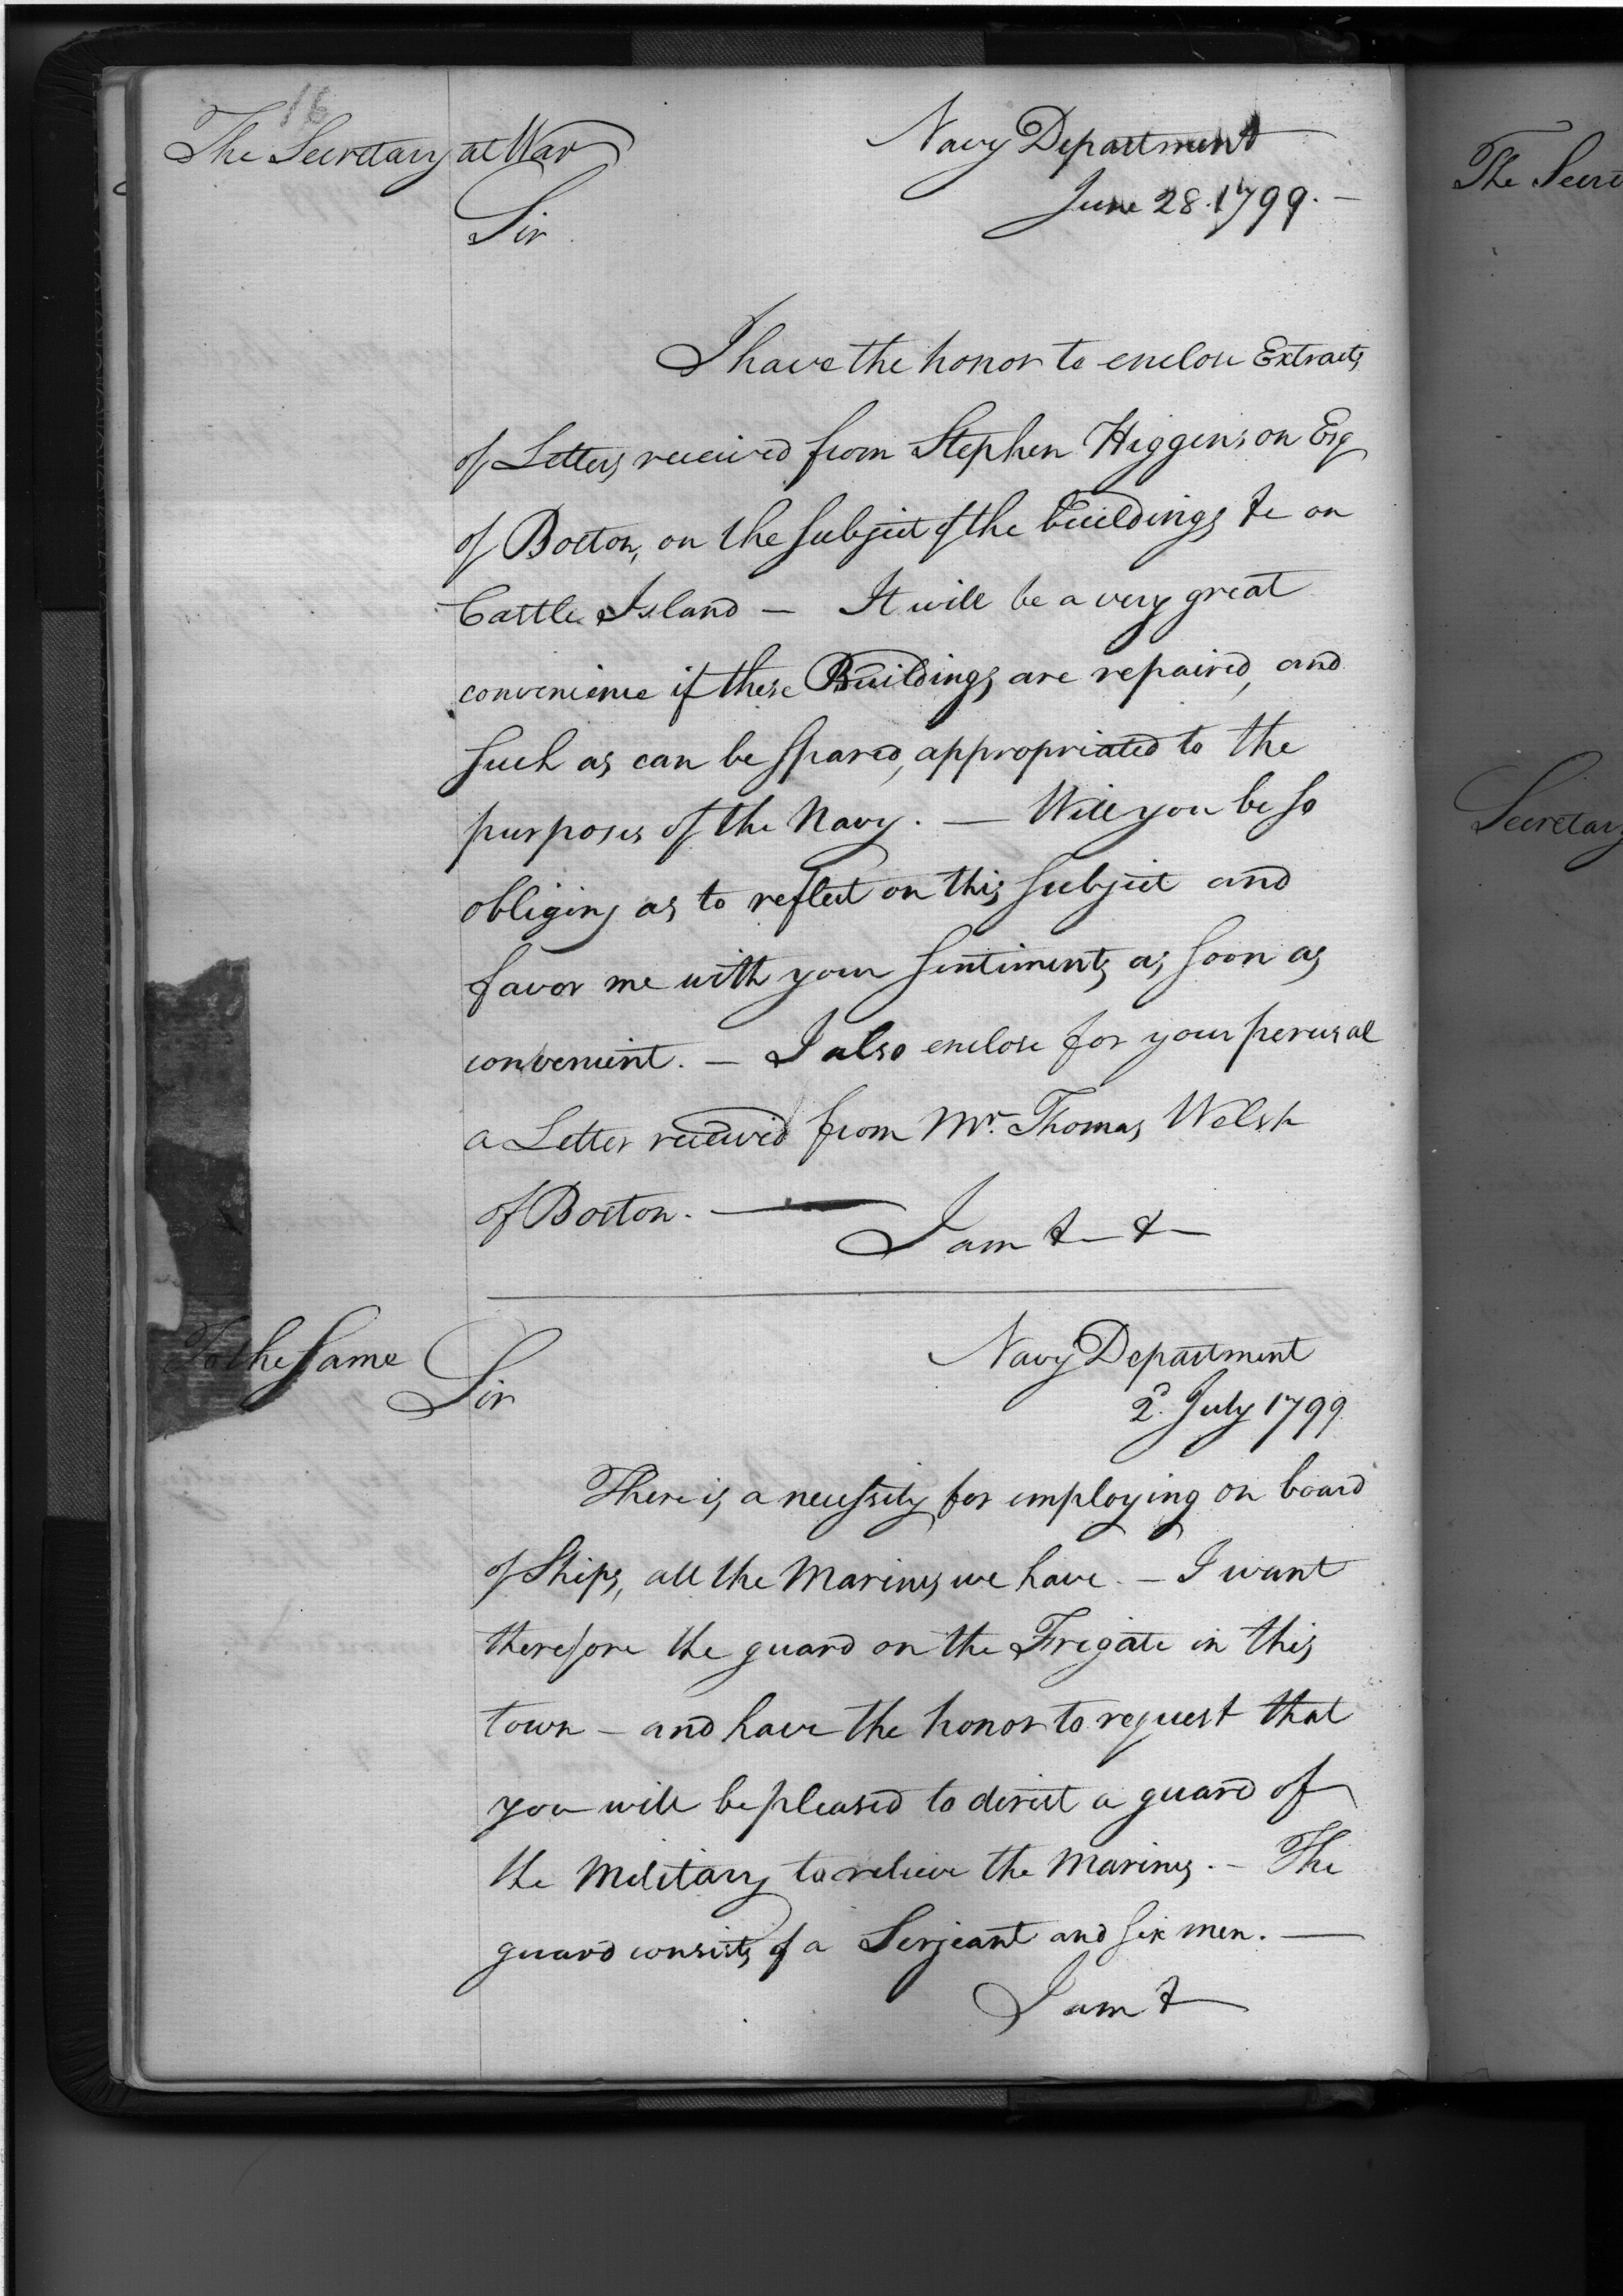 16
The Secretary at War
Navy Department
June 28. 1799. —
Sir
I have the honor to enclose Extracts
of Letters received from Stephen Higginson Esq
of Boston, on the subject of the buildings &c on
Castle Island — It will be a very great
convenience if these Buildings are repaired, and
such as can be spared, appropriated to the
purposes of the Navy. — Will you be so
obliging as to reflect on this subject and
favor me with your sentiments as soon as
convenient. — I also enclose for your perusal
a Letter received from Mr. Thomas Welsh
of Boston. —
I am & &
To the same
Sir
Navy Department
2d. July 1799
There is a necessity for employing on board
of Ships, all the Marines we have. — I want
therefore the guard on the Frigate in this
town — and have the honor to request that
you will be pleased to direct a guard of
the Military to relieve the Marines. — The
guard consists of a Serjeant and six men. —
I am &
The Secre
Secretary